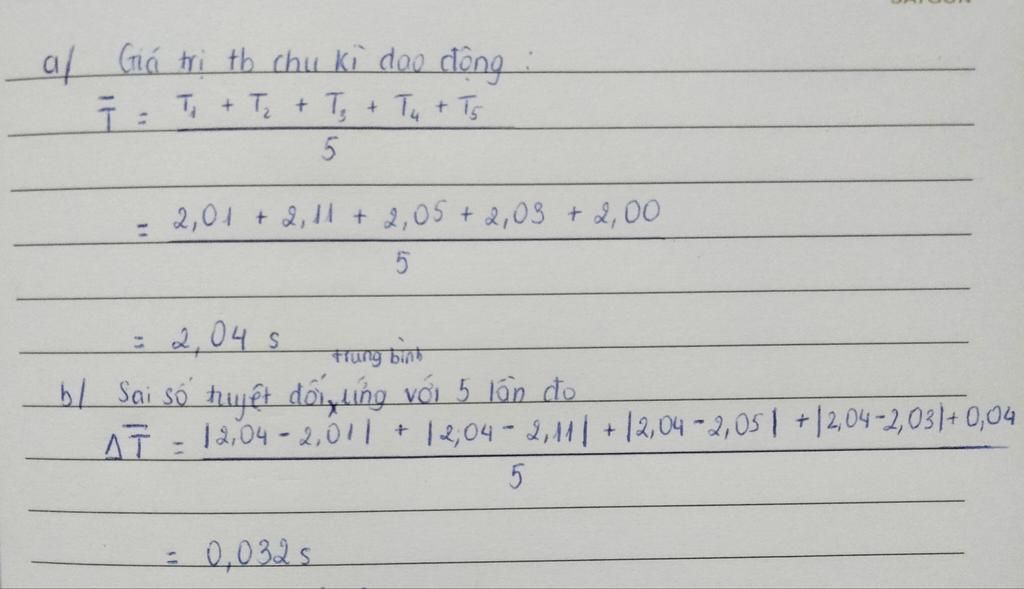 a/ Giá trị tb chu kì dao động :
T̄ = T₁ + T₂ + T₃ + T₄ + T₅
5
= 2,01 + 2,11 + 2,05 + 2,03 + 2,00
5
= 2,04 s
trung bình
b/ Sai số tuyệt đối x ứng với 5 lần đo
ΔT̄ = |2,04 - 2,01| + |2,04 - 2,11| + |2,04 - 2,05| + |2,04 - 2,03| + 0,04
5
= 0,032 s